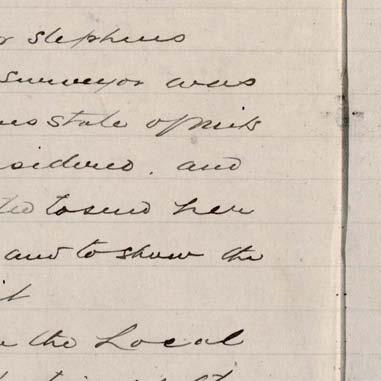 r Stephens
surveyor was
state of
sidered. and
ted to send her
and to show the
it
the Local